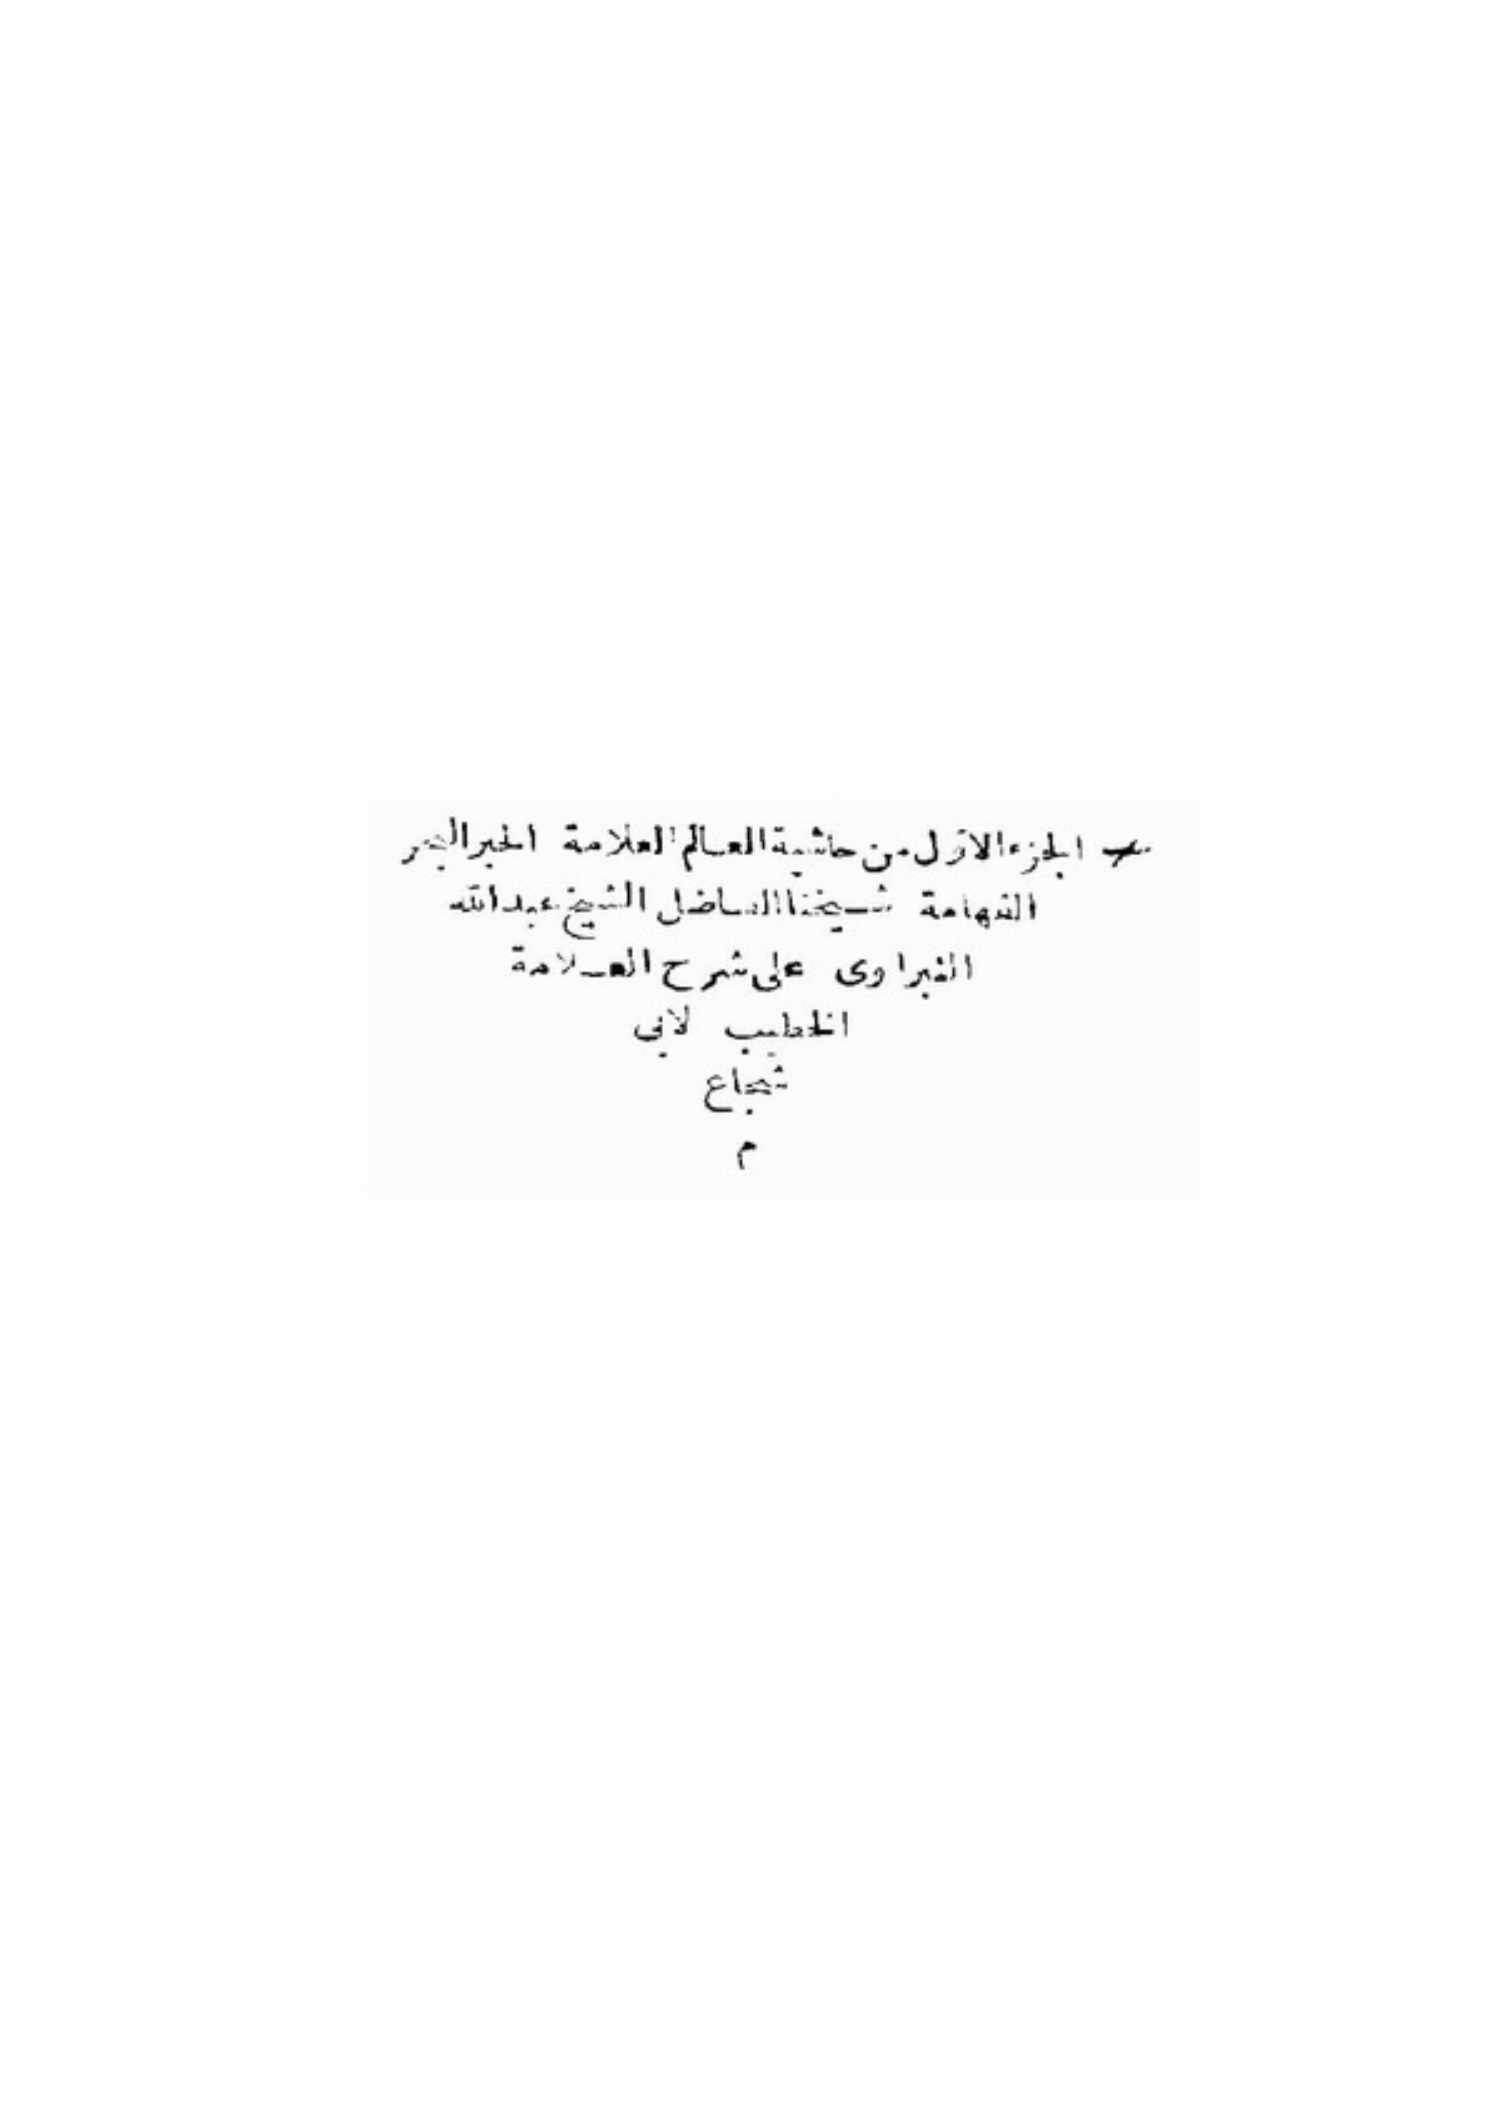 الجزء الاوّل من حاشية العالم العلامة الحبر البحر
الفهامة شيخنا الفاضل الشيخ عبد الله
النبراوى على شرح العلامة
الخطيب لابي
شجاع
م